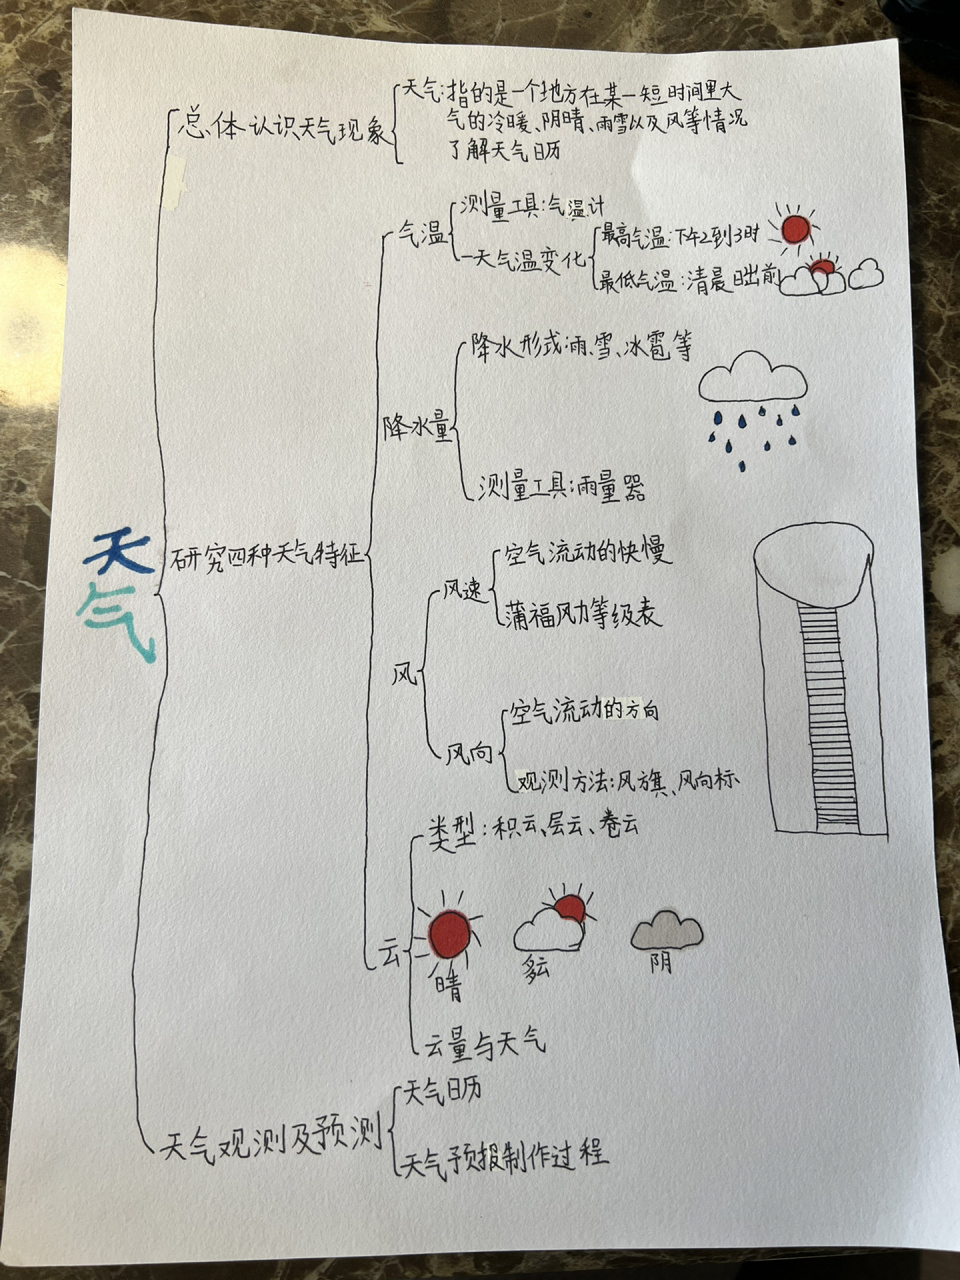 总体认识天气现象
天气:指的是一个地方在某一短时间里大
气的冷暖、阴晴、雨雪以及风等情况
了解天气日历
天气
研究四种天气特征
气温
测量工具:气温计
一天气温变化
最高气温:下午2到3时
最低气温:清晨日出前
降水量
降水形式:雨、雪、冰雹等
测量工具:雨量器
风
风速
空气流动的快慢
蒲福风力等级表
风向
空气流动的方向
观测方法:风旗、风向标
云
类型:积云、层云、卷云
晴
多云
阴
云量与天气
天气观测及预测
天气日历
天气预报制作过程